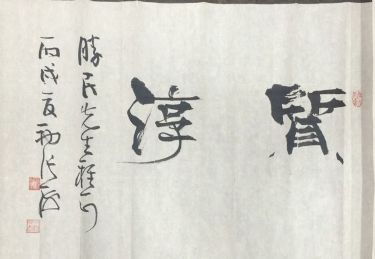 質淳
勝民先生雅正
丙戌夏初